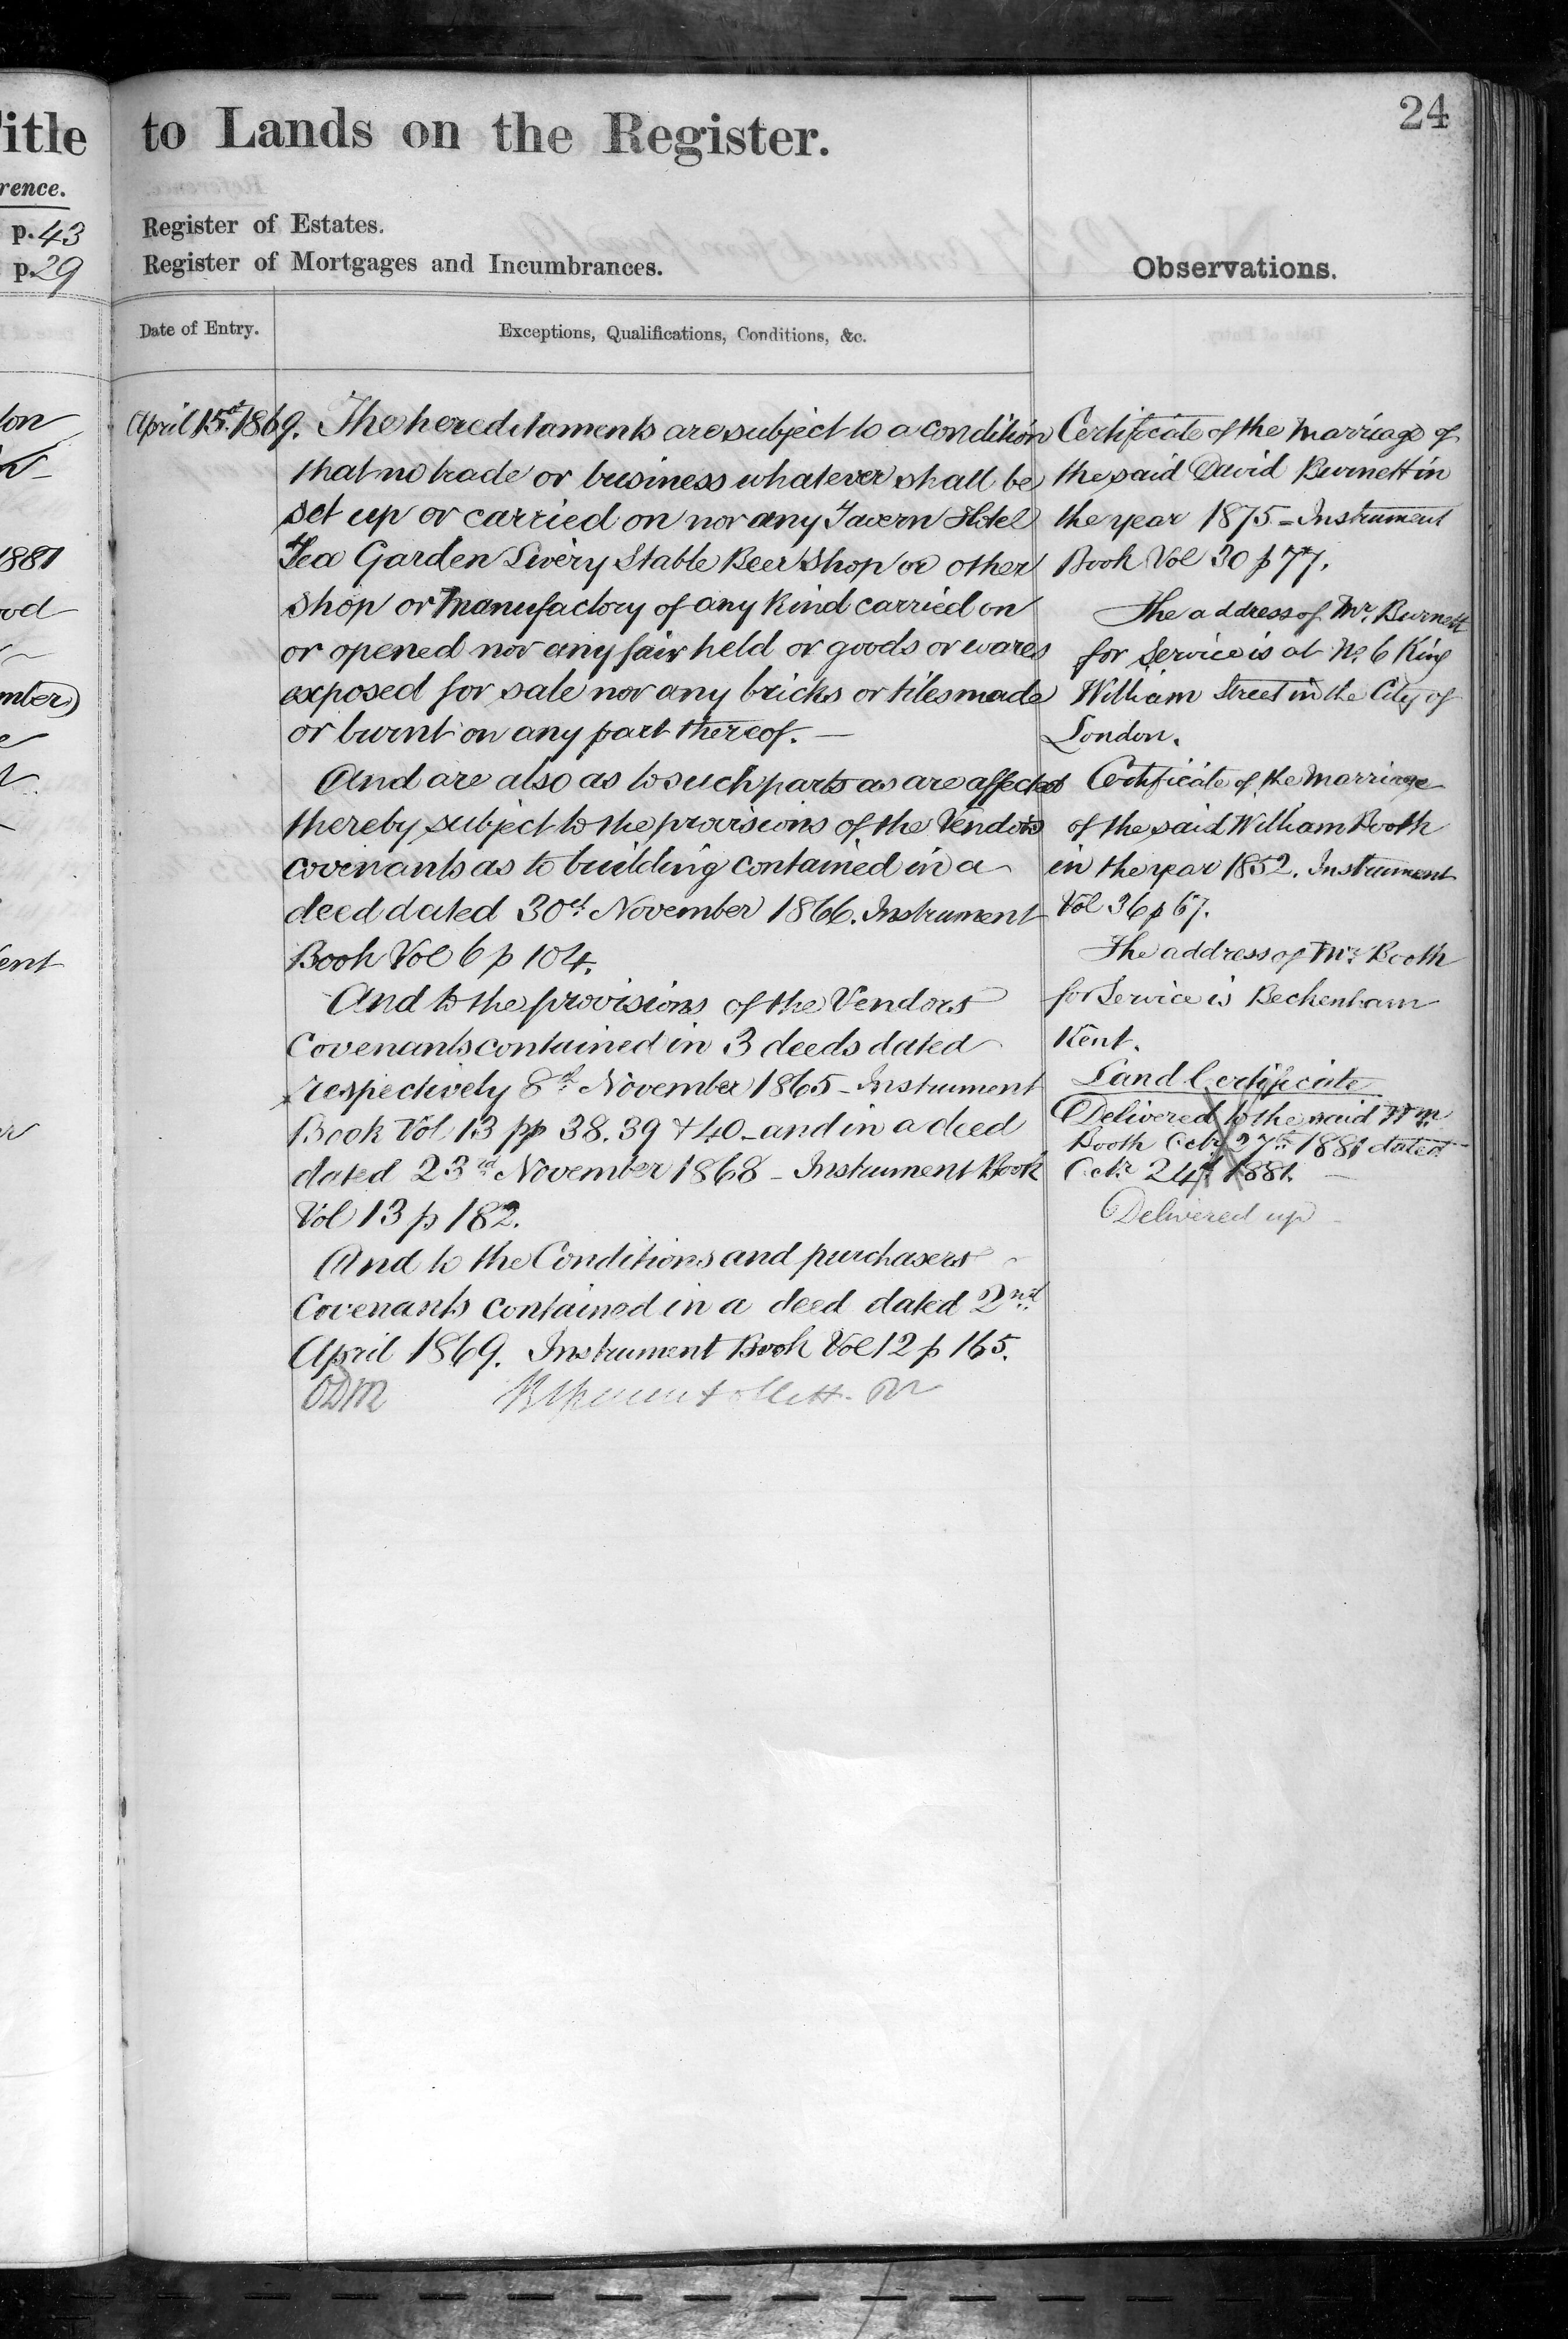 itle
rence.
p. 43
p. 29
1881
ent
24
to Lands on the Register.
Register of Estates.
Register of Mortgages and Incumbrances.
Observations.
Date of Entry.
Exceptions, Qualifications, Conditions, &c.
April 15th 1869.
The hereditaments are subject to a condition
that no trade or business whatever shall be
set up or carried on nor any Tavern Hotel
Tea Garden Livery Stable Beer Shop or other
shop or Manufactory of any kind carried on
or opened nor any fair held or goods or wares
exposed for sale nor any bricks or tiles made
or burnt on any part thereof. —
And are also as to such parts as are affected
thereby subject to the provisions of the Vendors
covenants as to building contained in a
deed dated 30th November 1866. Instrument
Book Vol 6 p 104.
And to the provisions of the Vendors
Covenants contained in 3 deeds dated
respectively 8th November 1865 - Instrument
Book Vol 13 pp 38. 39 & 40 - and in a deed
dated 23rd November 1868 - Instrument Book
Vol 13 p 182.
And to the Conditions and purchasers
Covenants contained in a deed dated 2nd
April 1869. Instrument Book Vol 12 p 165.
Certificate of the Marriage of
the said David Burnett in
the year 1875 - Instrument
Book Vol 30 p 77.
The address of Mr. Burnett
for Service is at No. 6 King
William Street in the City of
London.
Certificate of the Marriage
of the said William Booth
in the year 1852. Instrument
Vol 36 p 67.
The address of Mr. Booth
for Service is Beckenham
Kent.
Land Certificate
Delivered to the said Wm
Booth Octr. 27th 1881 dated
Octr 24th 1881. —
Delivered up